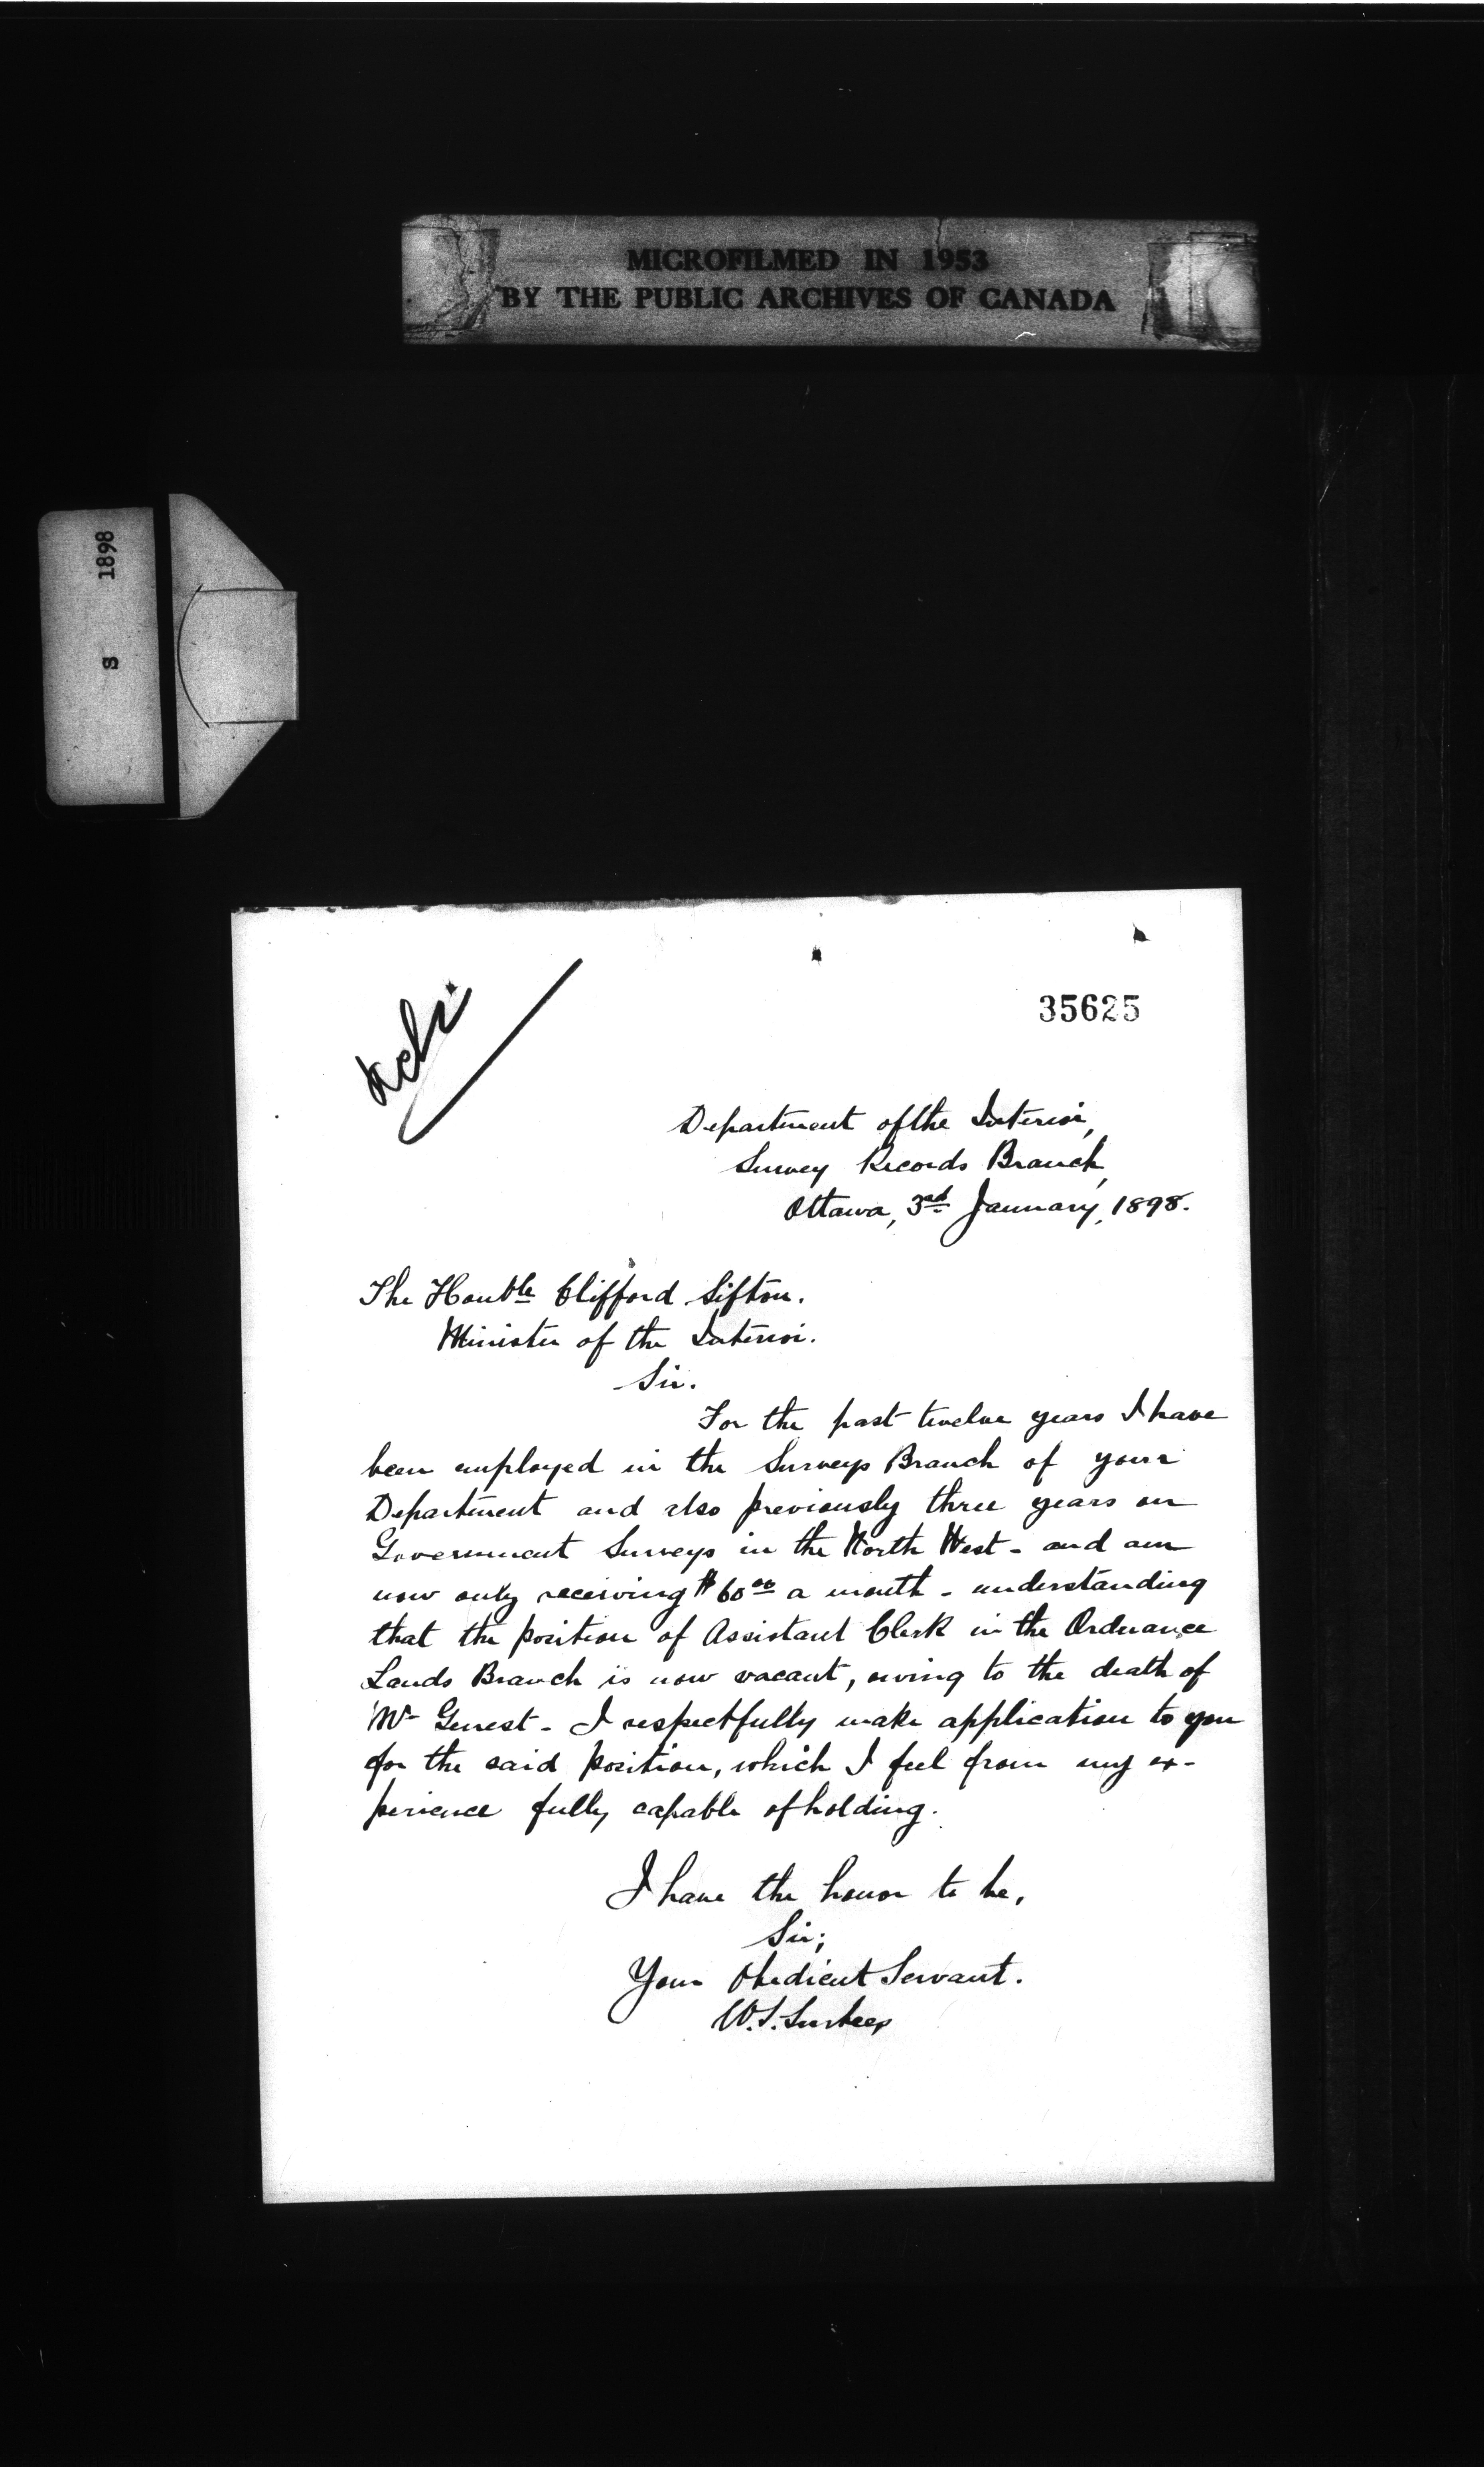 MICROFILMED IN 1953
BY THE PUBLIC ARCHIVES OF CANADA
S 1898
35625
Department of the Interior,
Survey Records Branch,
Ottawa, 3rd January, 1898.
The Honble Clifford Sifton.
Minister of the Interior.
Sir.
For the past twelve years I have
been employed in the Surveys Branch of your
Department and also previously three years on
Government Surveys in the North West - and am
now only receiving $60 00 a month - understanding
that the position of Assistant Clerk in the Ordnance
Lands Branch is now vacant, owing to the death of
Mr Genest - I respectfully make application to you
for the said position, which I feel from my ex-
perience fully capable of holding.
I have the honor to be,
Sir;
Your Obedient Servant.
W.S. Surtees